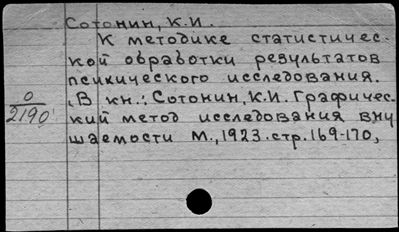 Сотонин, К.И.
К методике статистичес-
кой обработки результатов
психического исследования.
О
2190
(В кн.: Сотонин, К.И. Графичес-
кий метод исследования вну
шаемости М., 1923. стр. 169-170,